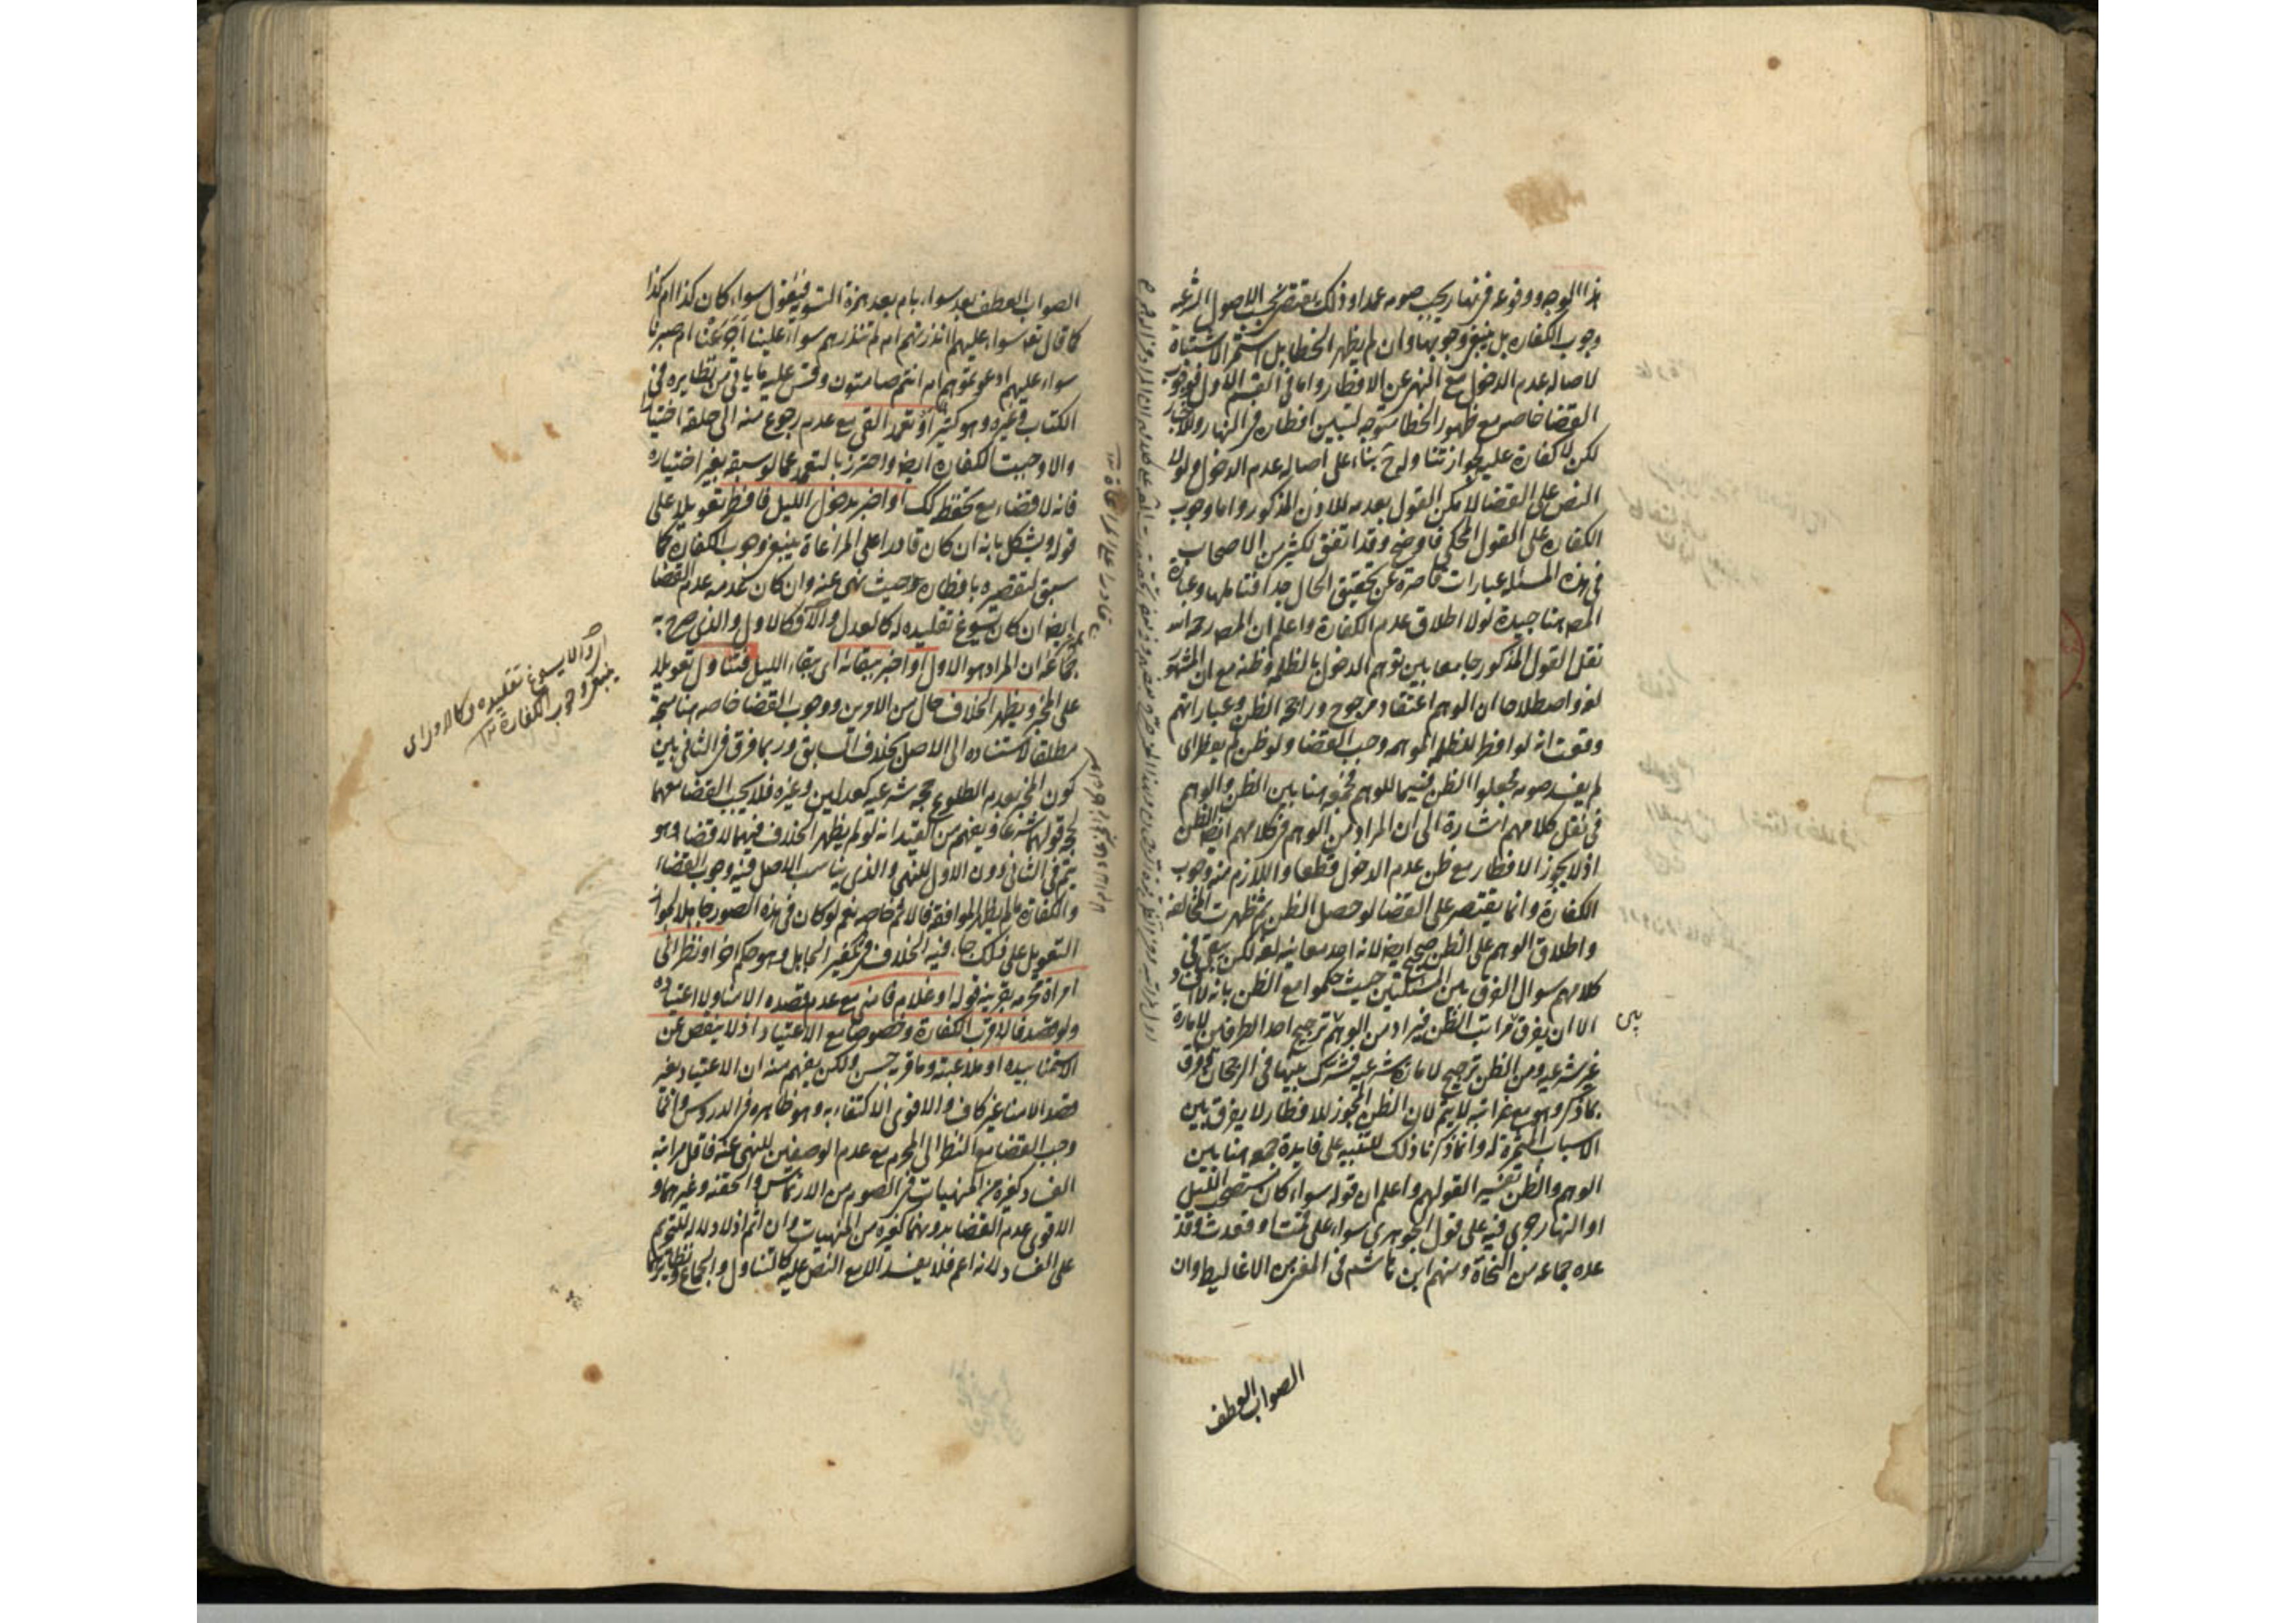 هذا الوجه ووقوعه فی نهار یجب صومه عمدا وذلک یقتضی بحسب الاصول الشرعیه
وجوب الکفاره بل ینبغی وجوبها وان لم یظهر الخطا بل استمر الاشتباه
لاصاله عدم الدخول مع النهی عن الافطار واما فی القسم الاول فوجوب
القضا خاصه مع ظهور الخطا متوجه لتبین افطاره فی النهار وللاخبار
لکن لا کفارة علیه لجواز تناوله ح بناء علی اصاله عدم الدخول ولولا
النص علی القضا لامکن القول بعدمه للاذن المذکور واما وجوب
الکفاره علی القول المحکی فاوضح وقد اتفق لکثیر من الاصحاب
فی هذه المسئله عبارات قاصرة عن تحقیق الحال جدا فتاملها وعبارة
المصه هنا جیدة لولا اطلاق عدم الکفارة واعلم ان المصه رحمه الله
نقل القول المذکور جامعا بین توهم الدخول بالظلمه وظنه مع ان المشهور
لغه واصطلاحا ان الوهم اعتقاد مرجوح وراجحه الظن وعباراتهم
وقعت انه لو افطر للظلمه الموهمه وجب القضا ولو ظن لم یفطر ای
لم یفسد صومه فجعلوا الظن قسیما للوهم فجمعه هنا بین الظن والوهم
فی نقل کلامهم اشارة الی ان المراد من الوهم فی کلامهم ایضا الظن
اذ لا یجوز الافطار مع ظن عدم الدخول قطعا واللازم منه وجوب
الکفارة وانما یقتصر علی القضا لو حصل الظن ثم ظهرت المخالفه
واطلاق الوهم علی الظن صحیح ایضا لانه احد معانیه لغه لکن یبقی فی
کلامهم سوال الفرق بین المسئلتین حیث حکموا مع الظن بانه لا افساد
الا ان یفرق بین مراتب الظن فیراد من الوهم ترجیح احد الطرفین لامارة
غیر شرعیه ومن الظن ترجیح لامارة شرعیه فشرک بینهما فی الرجحان وفرق
بما ذکر وهو مع غرابته لا یتم لان الظن المجوز للافطار لا یفرق بین
الاسباب المثمرة له وانما ذکرنا ذلک للتنبیه علی فایدة جمعه هنا بین
الوهم والظن تفسیرا لقولهم واعلم ان قوله سواء کان مستصحب اللیل
او النهار جری فیه علی قول الجوهری سواء علی قمت او قعدت وقد
عده جماعه من النحاة ومنهم ابن هاشم فی المغنی من الاغالیط وان
الصواب العطف
الصواب العطف بعد سواء بام بعد همزة التسویه فیقول سواء کان کذا ام کذا
کما قال تعا سواء علیهم أأنذرتهم ام لم تنذرهم سواء علینا أجزعنا ام صبرنا
سواء علیهم ادعوتموهم ام انتم صامتون وقس علیه ما یاتی من نظایره فی
الکتاب وغیره وهو کثیر او تعمد القی مع عدم رجوع منه الی حلقه اختیارا
والا وجبت الکفاره ایضا واحترز بالتعمد عما لو سبقه بغیر اختیاره
فانه لا قضاء مع تحفظه کک او اخبر بدخول اللیل فافطر تعویلا علی
قوله ویشکل بانه ان کان قادرا علی المراعاة ینبغی وجوب الکفاره کما
سبق لتقصیره بافطاره حیث نهی عنه وان کان مع عدمه عدم القضا
ایضا ان کان یسوغ تقلیده له کالعدل والا فکالاول والذی صرح به
جماعه ان المراد هو الاول او اخبر ببقائه ای ببقاء اللیل فتناول تعویلا
علی المخبر ویظهر الخلاف حال من الامرین ووجوب القضا خاصه هنا متجه
مطلقا لاستناده الی الاصل بخلاف السابق وربما فرق فی الثانی بین
کون المخبر بعدم الطلوع حجه شرعیه کعدلین وغیره فلا یجب القضا معهما
لحجه قولهما شرعا ویفهم من القید انه لو لم یظهر الخلاف فیهما لا قضا وهو
یتم فی الثانی دون الاول للنهی والذی یناسب الاصل فیه وجوب القضاء
والکفارة ما لم یظهر الموافقه فالاثم خاصه نعم لو کان فی هذه الصور جاهلا بجواز
التعویل علی ذلک جاء فیه الخلاف فی تکفیر الجاهل وهو حکم اخر او نظر الی
امراة محرمه بقرینه قوله او غلام فامنی مع عدم قصده الامنا ولا اعتیاده
ولو قصد فالاقرب الکفارة وخصوصا مع الاعتیاد اذ لا ینقص عن
الاستمنا بیده او ملاعبته وما قربه حسن ولکن یفهم منه ان الاعتیاد بغیر
قصد الامنا غیر کاف والاقوی الاکتفاء به وهو ظاهره فی الدروس وانما
وجب القضا مع النظر الی المحرم مع عدم الوصفین للنهی عنه فاقل مراتبه
الفساد کغیره من المنهیات فی الصوم من الارتماس والحقنه وغیرهما و
الاقوی عدم القضا بدونهما کغیره من المنهیات وان اثم اذ لا دلاله للتحریم
علی الفساد لانه اعم فلا یفسد الا مع النص علیه کالتناول والجماع ونظایرهما
ای والا یسوغ تقلیده فکالاول ای
ینبغی وجوب الکفارة ۱۲